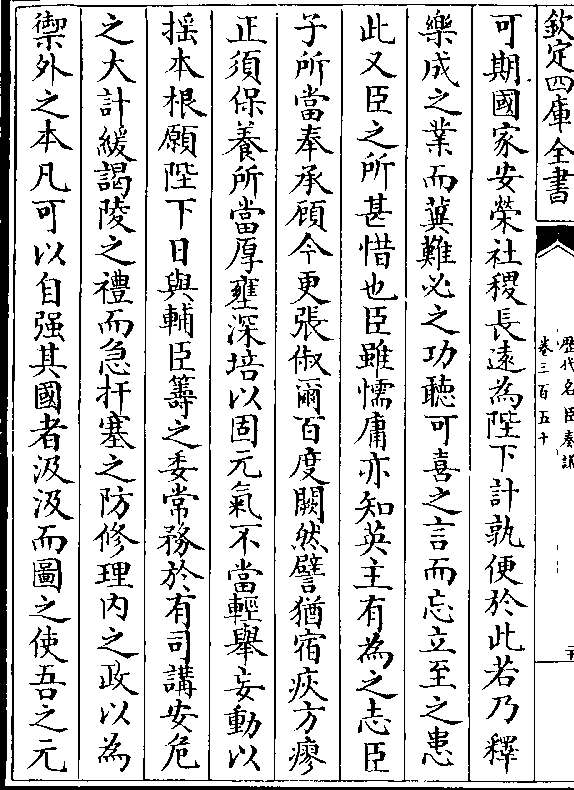 欽定四庫全書
歷代名臣奏議
卷三百五十
可期國家安榮社稷長遠為陛下計孰便於此若乃釋
樂成之業而冀難必之功聽可喜之言而忘立至之患
此又臣之所甚惜也臣雖懦庸亦知英主有為之志臣
子所當奉承顧今更張俶爾百度闕然譬猶宿疾方瘳
正須保養所當厚壅深培以固元氣不當輕舉妄動以
揺本根願陛下日與輔臣籌之委常務於有司講安危
之大計緩謁陵之禮而急扞塞之防修理内之政以為
禦外之本凡可以自强其國者汲汲而圖之使吾之元